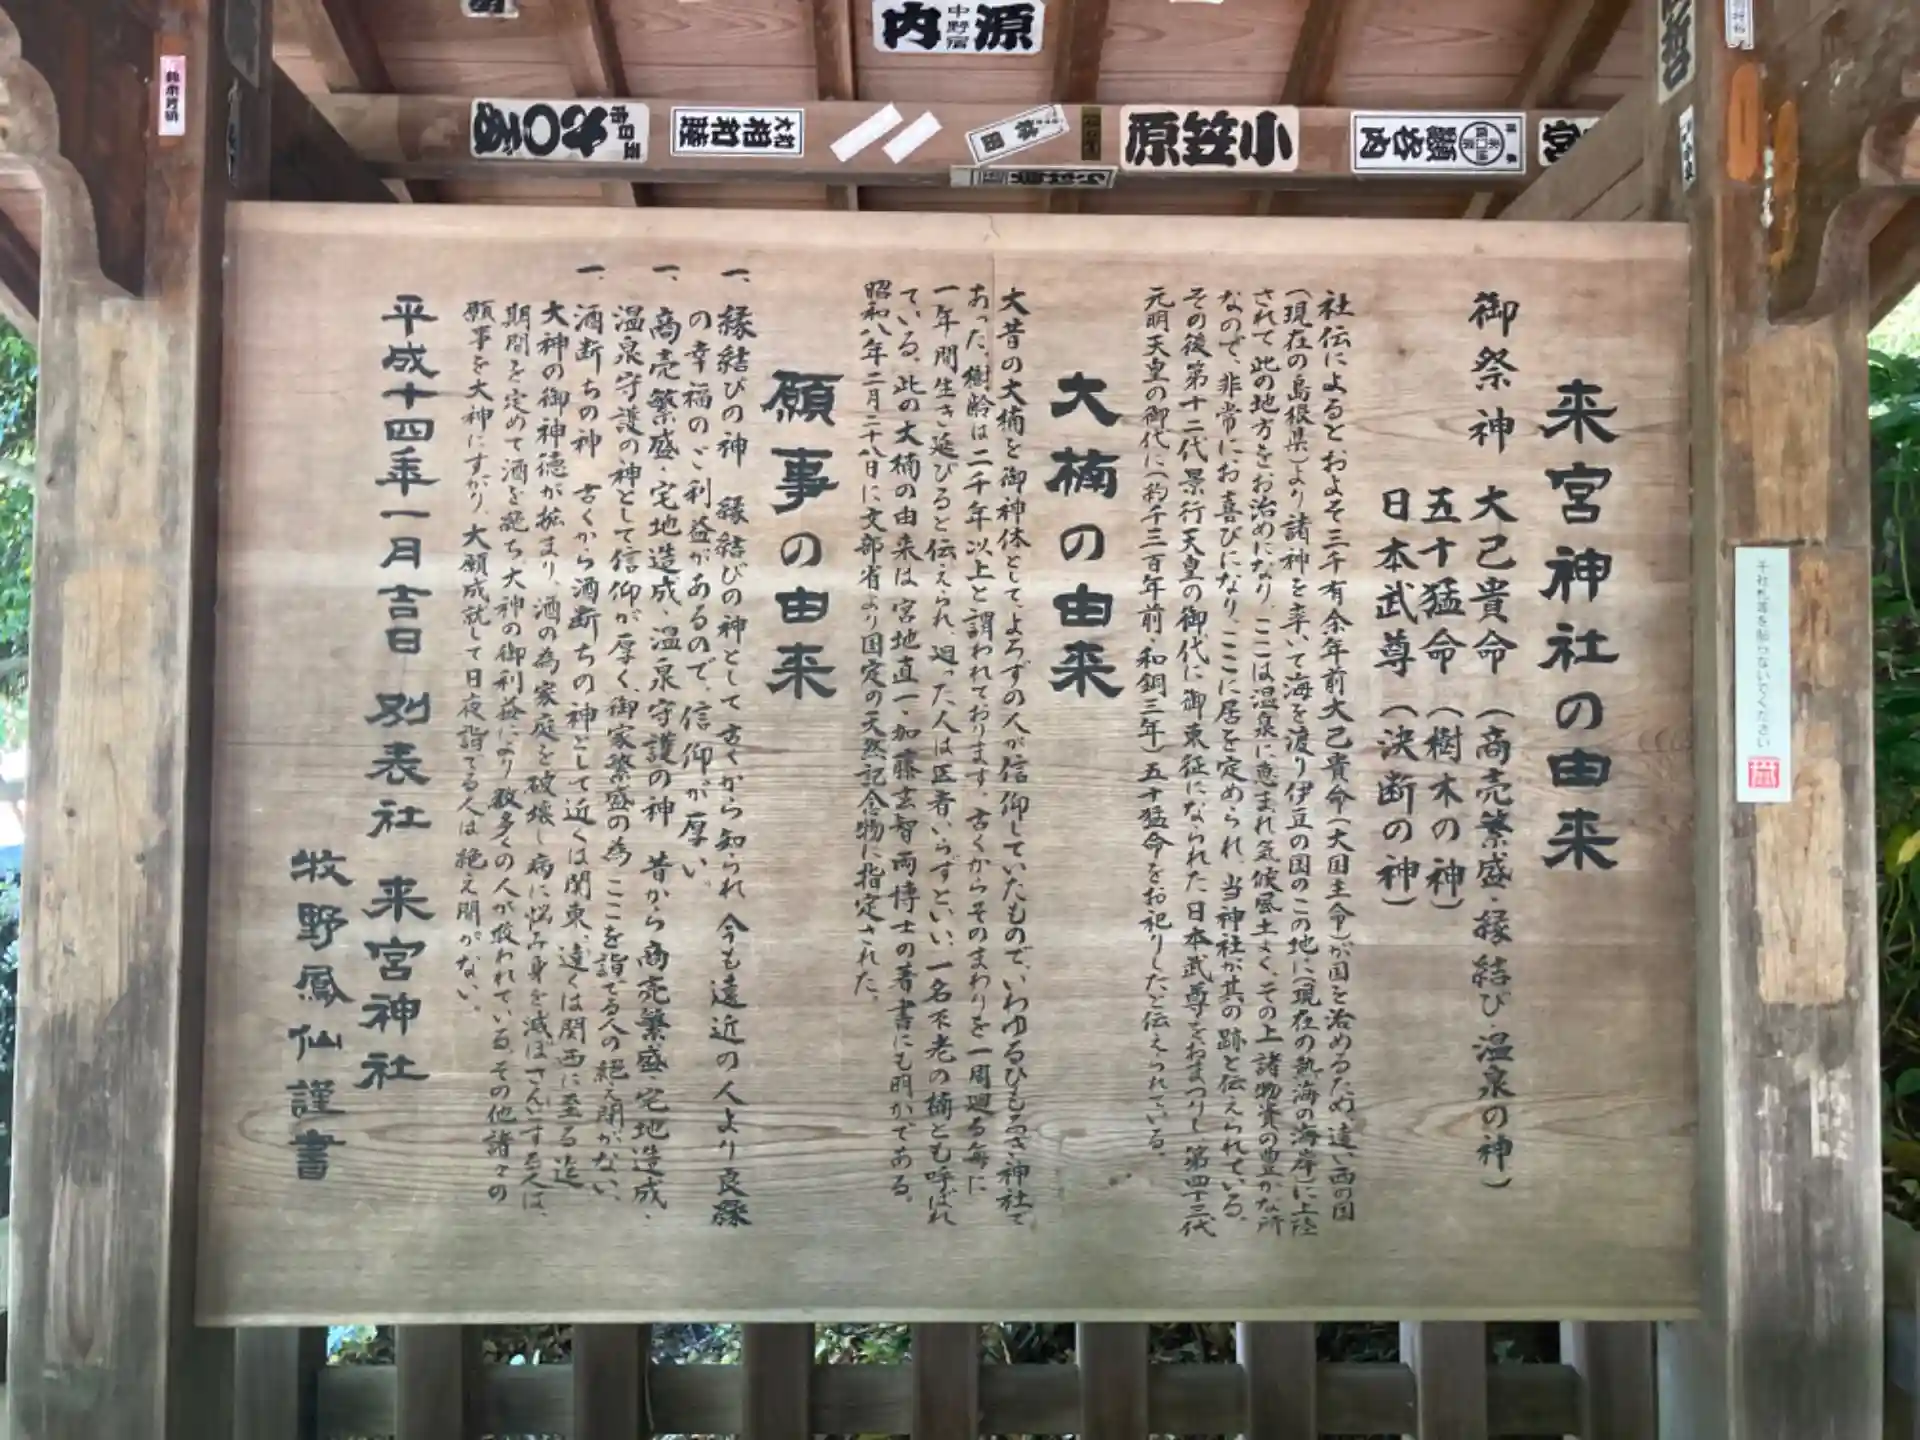 来宮神社の由来
御祭神 大己貴命（商売繁盛・縁結び・温泉の神）
五十猛命（樹木の神）
日本武尊（決断の神）
社伝によるとおよそ三千有余年前大己貴命（大国主命）が国を治めるため遠い西の国
（現在の島根県）より諸神を率いて海を渡り伊豆の国のこの地に（現在の熱海の海岸）に上陸
されて此の地方をお治めになり、ここは温泉に恵まれ気候風土よく、その上諸物資の豊かな所
なので、非常にお喜びになり、ここに居を定められ、当神社が其の跡と伝えられている。
その後第十二代景行天皇の御代に御東征になられた日本武尊をおまつりし 第四十三代
元明天皇の御代に（約千三百年前・和銅三年）五十猛命をお祀りしたと伝えられている。
大楠の由来
大昔の大楠を御神体として、よろずの人が信仰していたもので、いわゆるひもろぎ神社で
あった、樹齢は二千年以上と謂われております。古くからそのまわりを一周廻る毎に
一年間生き延びると伝えられ、廻った人は医者いらずといい、一名不老の楠とも呼ばれ
ている。此の大楠の由来は宮地直一・加藤玄智両博士の著書にも明かである。
昭和八年二月二十八日に文部省より国定の天然記念物に指定された。
願事の由来
一、縁結びの神 縁結びの神として古くから知られ 今も遠近の人より良縁
の幸福のご利益があるので、信仰が厚い。
一、商売繁盛・宅地造成・温泉守護の神 昔から商売繁盛・宅地造成・
温泉守護の神として信仰が厚く、御家繁盛の為 ここを詣でる人の絶え間がない、
一、酒断ちの神 古くから酒断ちの神として近くは関東、遠くは関西に至る迄
大神の御神徳が拡まり、酒の為家庭を破壊し病に悩み身を滅ぼさんいする人は、
期間を定めて酒を絶ち、大神の御利益により数多くの人が救われている、その他諸々の
願事を大神にすがり、大願成就して日夜詣でる人は絶え間がない。
平成十四年一月吉日 別表社 来宮神社
牧野鳳仙謹書
源 中野宿 内
小笠原
千社札等を貼らないでください